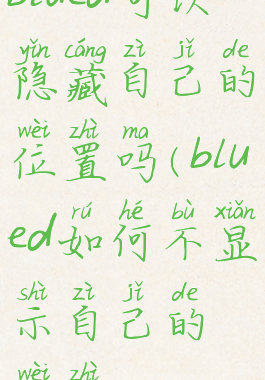 yǐn cáng zì jǐ de
隐藏自己的
wèi zhì ma
位置吗(blu
rú hé bù xiǎn
ed如何不显
shì zì jǐ de
示自己的
wèi zhì